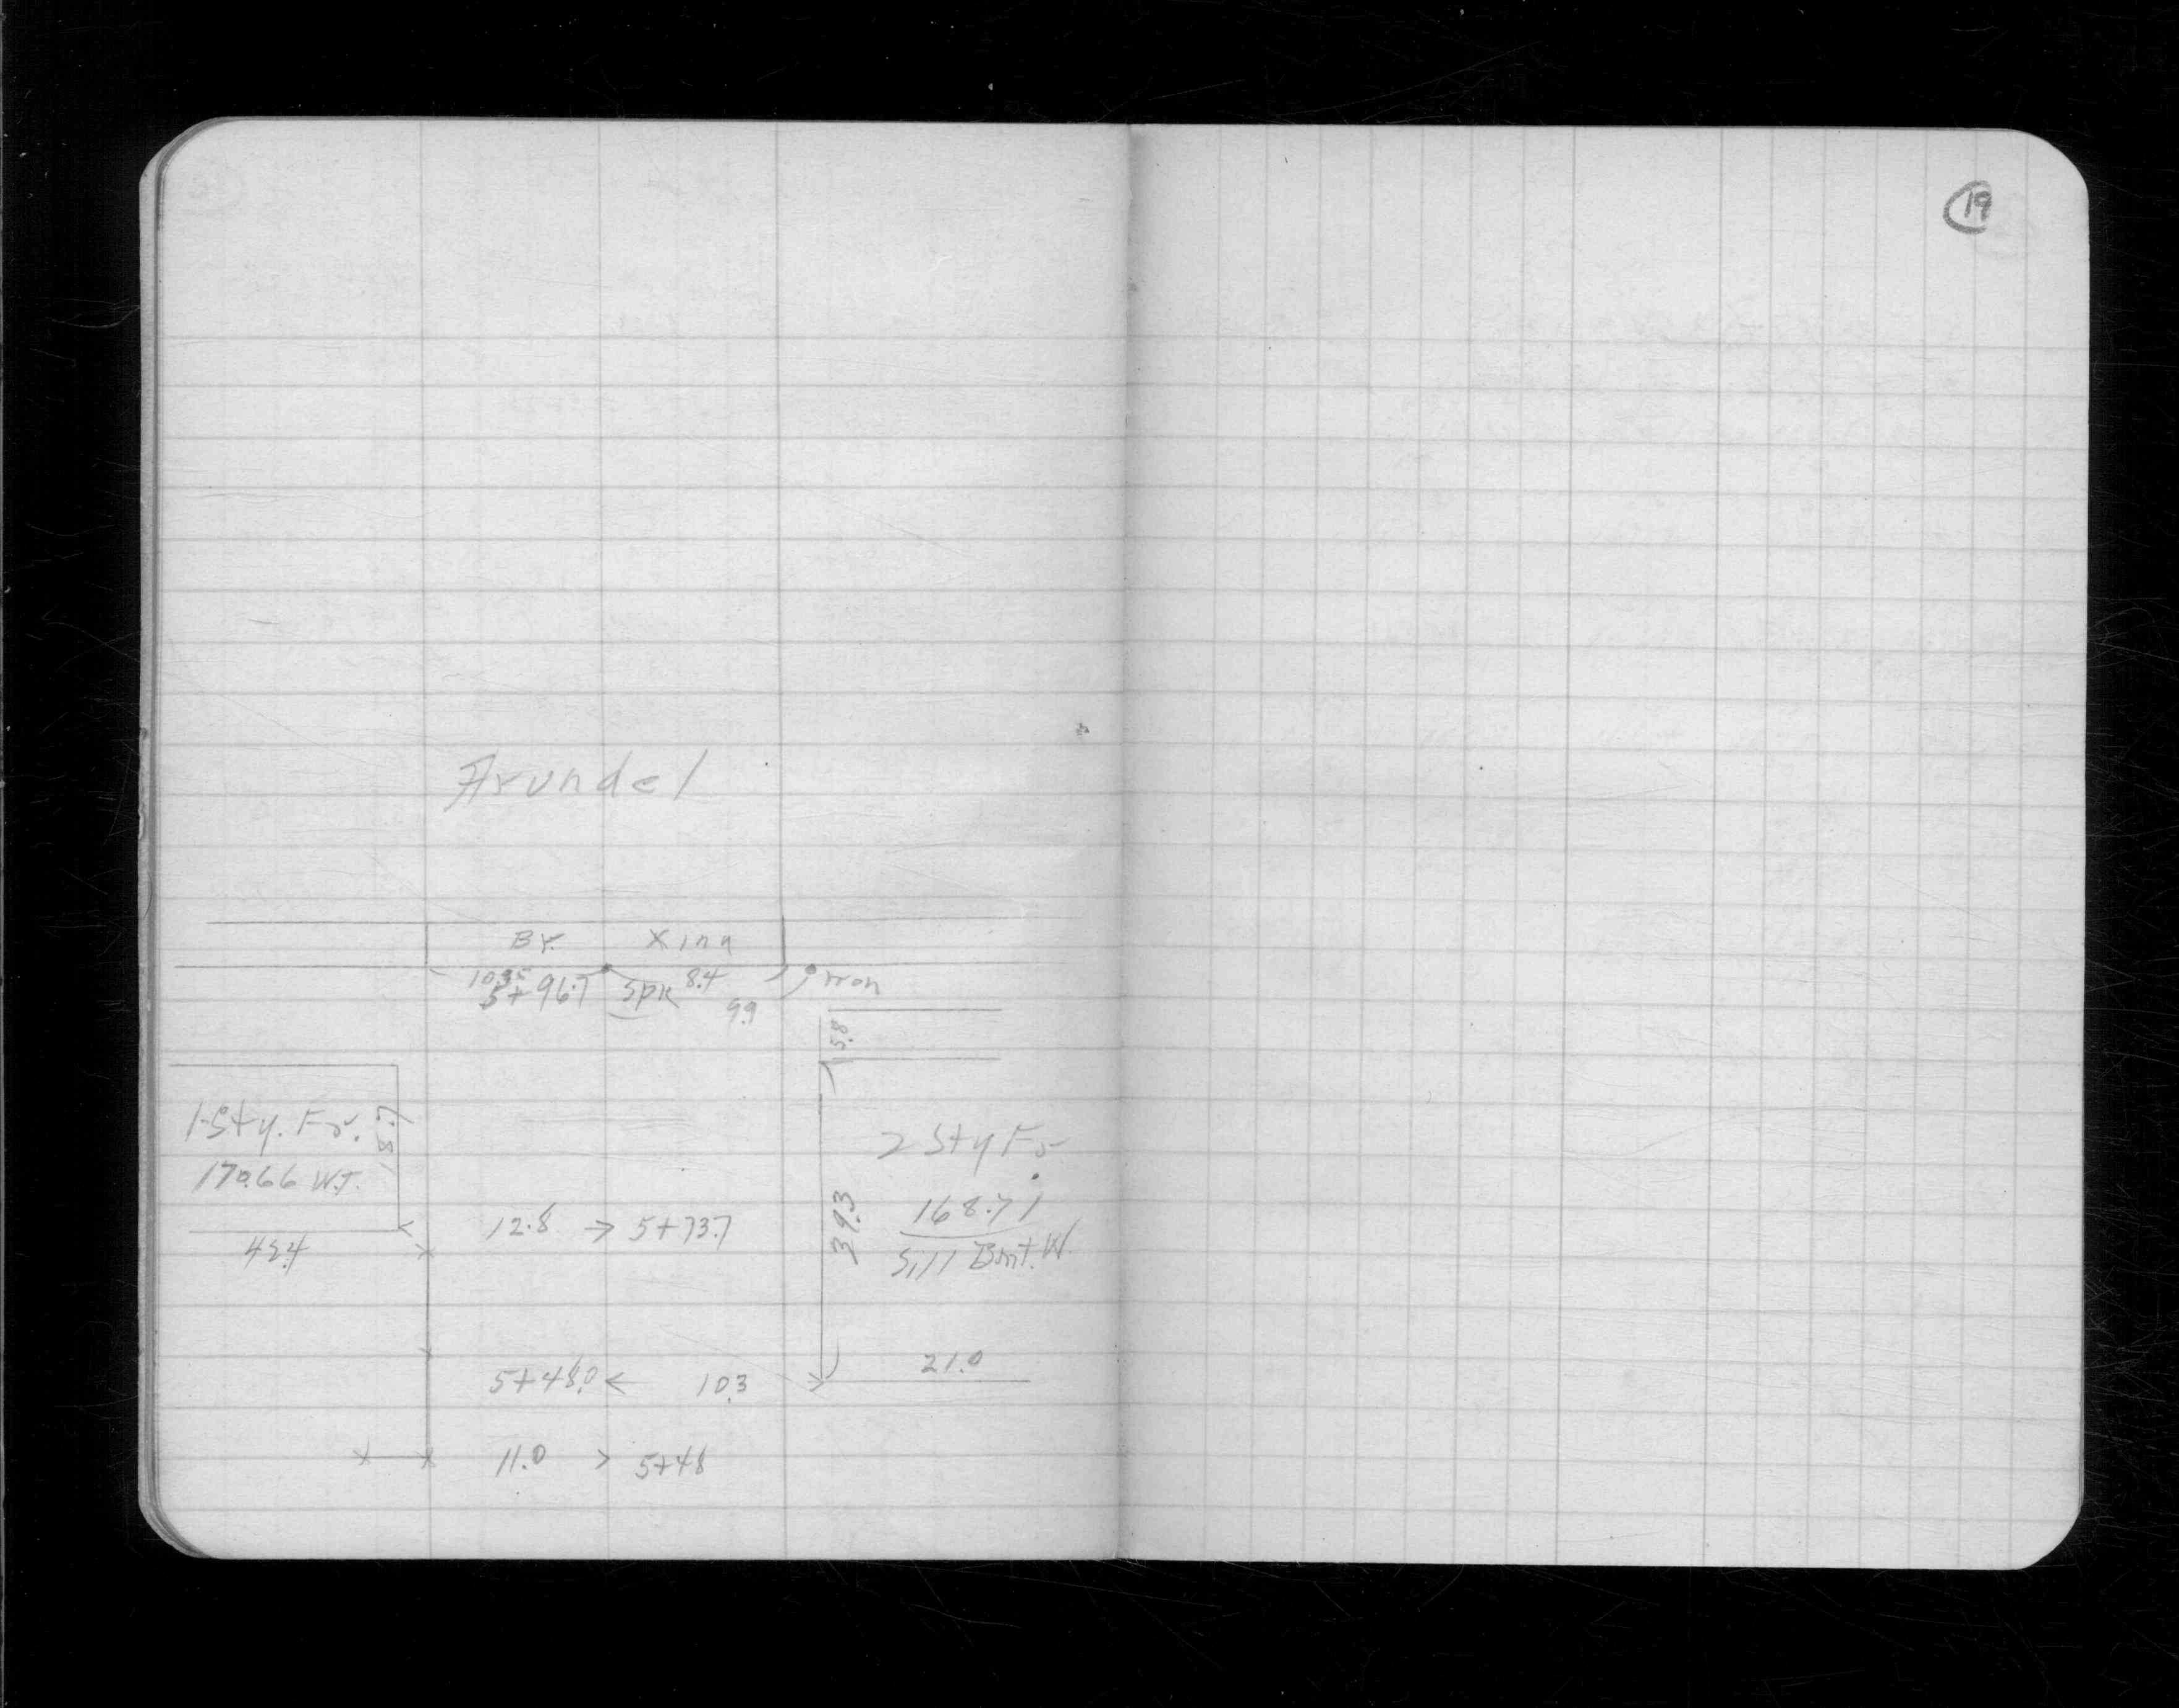 19
Arundel
Br. Xing
10.35 8.4 Iron
5+96.7 Spk 9.9
5.8
1-Sty. Fr. 18.7
2 Sty Fr.
170.66 W.T.
39.3 168.71
12.8 → 5+73.7
Sill Bmt. W.
21.0
5+48.0 ← 10.3
11.0 > 5+48